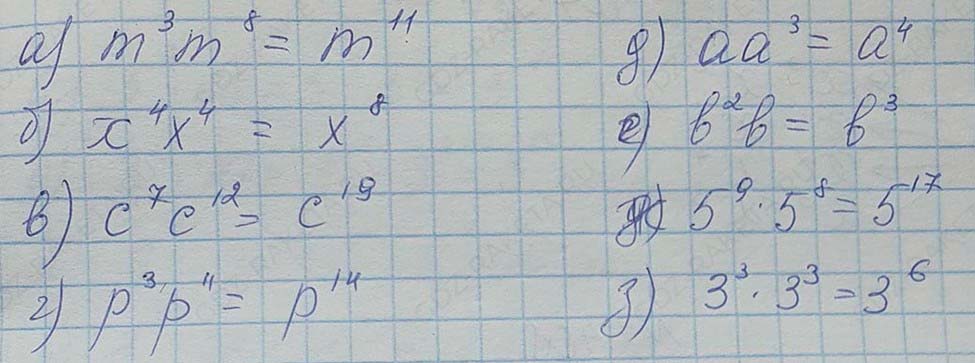 а) m³m⁸ = m¹¹
б) x⁴x⁴ = x⁸
в) c⁷c¹² = c¹⁹
г) p³p¹¹ = p¹⁴
д) aa³ = a⁴
е) b²b = b³
ж) 5⁹·5⁸ = 5¹⁷
з) 3³·3³ = 3⁶